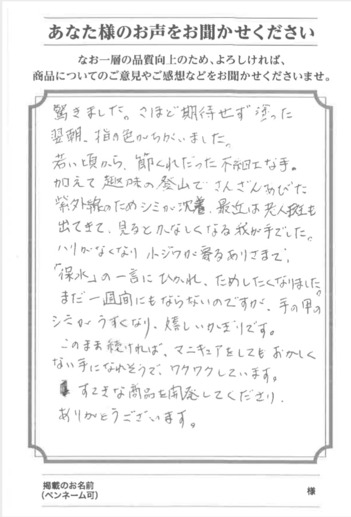 あなた様のお声をお聞かせください
なお一層の品質向上のため、よろしければ、
商品についてのご意見やご感想などをお聞かせくださいませ。
驚きました。さほど期待せず塗った
翌朝、指の色がちがいました。
若い頃から、節くれだった不細工な手。
加えて趣味の登山でさんざんあびた
紫外線のためシミが沈着、最近は老人斑も
出てきて、見るとかなしくなる我が手でした。
ハリがなくなり小ジワが寄るありさまで、
「保水」の一言にひかれ、ためしたくなりました。
まだ一週間にもならないのですが、手の甲の
シミがうすくなり、嬉しいかぎりです。
このまま続ければ、マニキュアをしてもおかしく
ない手になれそうで、ワクワクしています。
すてきな商品を開発してくださり、
ありがとうございます。
掲載のお名前
(ペンネーム可)
様